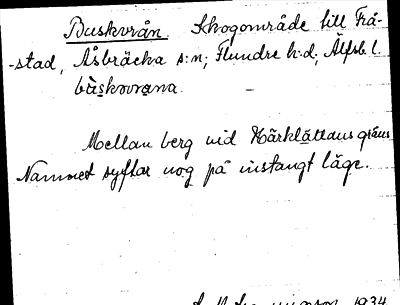 Buskvrån. Skogområde till Frå-
-stad, Åsbräcka s:n; Flundre h:d; Älfsb l.
bùskvrana
Mellan berg vid Kärklättans gräns
Namnet syftar nog på instängt läge.
1934